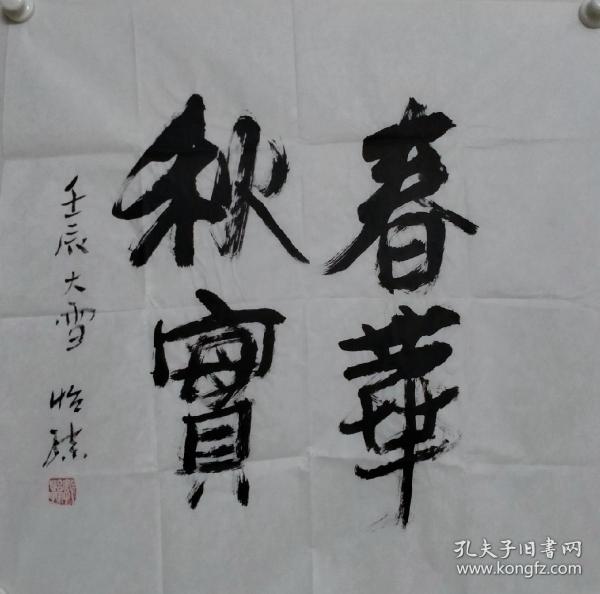 春華
秋實
壬辰大雪
怡
孔夫子旧書网
www.kongfz.com